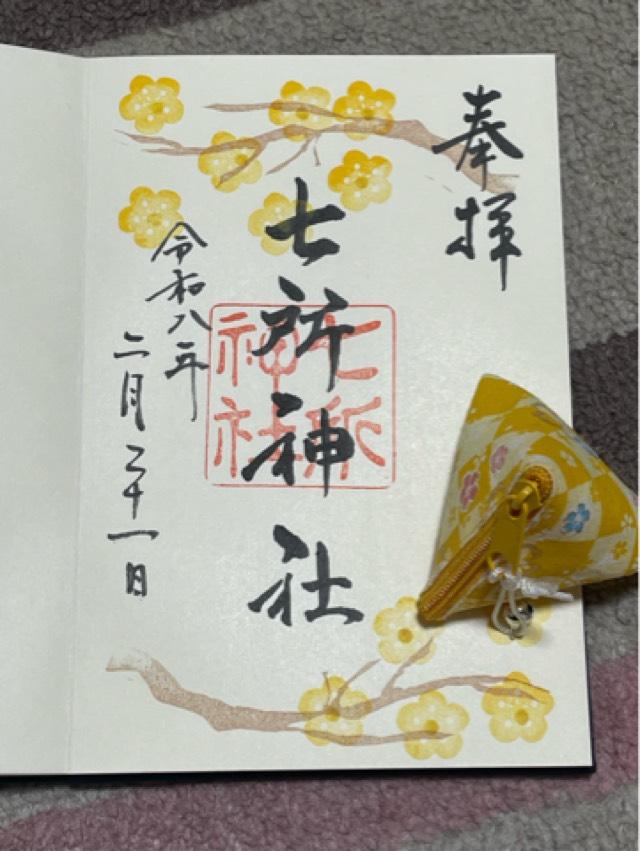 奉拝
七所神社
七所
神社
令和八年
二月二十一日